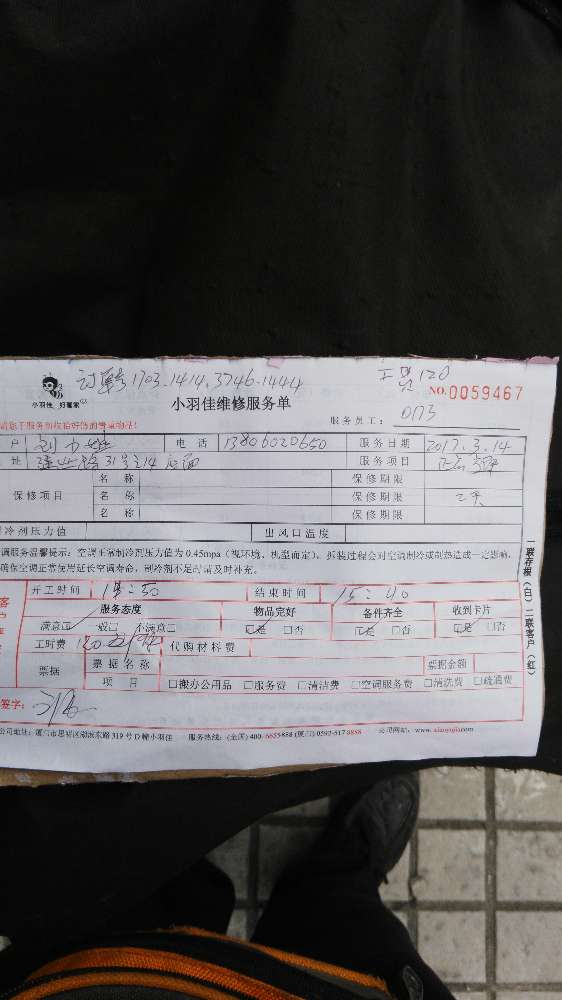 1703.1414.3746.1444 工費120
小羽佳 好管家
小羽佳维修服务单 NO.0059467
服务员工： 0173
户 电话 13806020650 服务日期 2017.3.14
址 31号之14 店面 服务项目
名称 保修期限
保修项目 名称 保修期限
名称 保修期限
冷剂压力值 出风口温度
调服务温馨提示：空调正常制冷剂压力值为0.45mpa（视环境、机型而定）、拆装过程会对空调制冷或制热造成一定影响，
确保空调正常使用延长空调寿命，制冷剂不足时请及时补充。
开工时间 结束时间 15:40
服务态度 物品完好 备件齐全 收到卡片
满意 一般 不满意 是 否 是 否 是 否
工时费 代购材料费
票据 票据名称 票据金额
项目 □搬办公用品 □服务费 □清洁费 □空调服务费 □清洗费 □疏通费
签字：
公司地址：厦门市思明区湖滨东路319号D幢小羽佳 服务热线：(全国)400-6655888 (厦门)0592-5178888 公司网站：www.xiaoyujia.com
一联存根（白）二联客户（红）